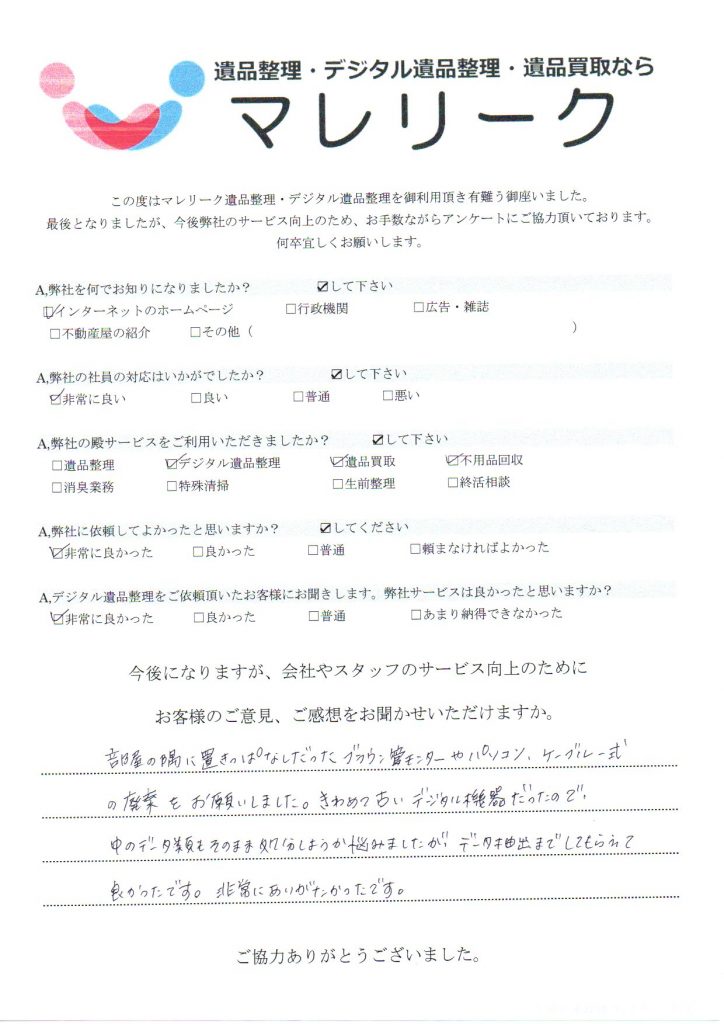 遺品整理・デジタル遺品整理・遺品買取なら
マレリーク
この度はマレリーク遺品整理・デジタル遺品整理を御利用頂き有難う御座いました。
最後となりましたが、今後弊社のサービス向上のため、お手数ながらアンケートにご協力頂いております。
何卒宜しくお願いします。
A,弊社を何でお知りになりましたか？ ☑して下さい
☑インターネットのホームページ □行政機関 □広告・雑誌
□不動産屋の紹介 □その他（ ）
A,弊社の社員の対応はいかがでしたか？ ☑して下さい
☑非常に良い □良い □普通 □悪い
A,弊社の殿サービスをご利用いただきましたか？ ☑して下さい
□遺品整理 ☑デジタル遺品整理 ☑遺品買取 ☑不用品回収
□消臭業務 □特殊清掃 □生前整理 □終活相談
A,弊社に依頼してよかったと思いますか？ ☑してください
☑非常に良かった □良かった □普通 □頼まなければよかった
A,デジタル遺品整理をご依頼頂いたお客様にお聞きします。弊社サービスは良かったと思いますか？
☑非常に良かった □良かった □普通 □あまり納得できなかった
今後になりますが、会社やスタッフのサービス向上のために
お客様のご意見、ご感想をお聞かせいただけますか。
部屋の隅に置きっぱなしだったブラウン管モンターやパソコン、ケーブル一式
の廃棄をお願いしました。きわめて古いデジタル機器だったので、
中のデータ類もそのまま処分しようか悩みましたが、データ抽出までしてもらえて
良かったです。非常にありがたかったです。
ご協力ありがとうございました。